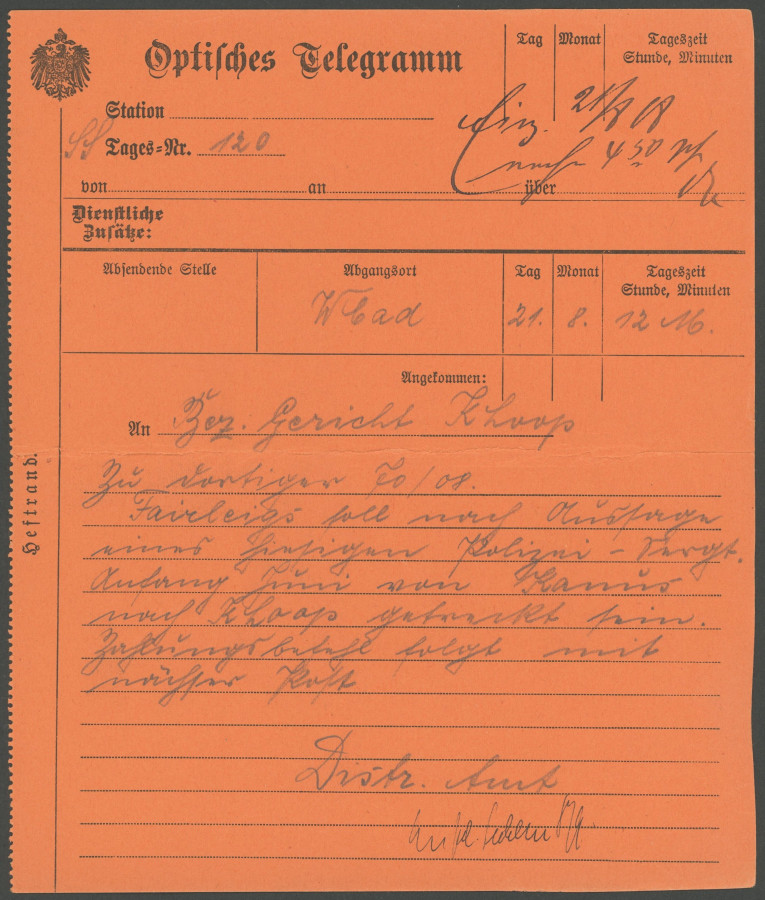 Optisches Telegramm
Tag Monat Tageszeit Stunde, Minuten
Station
Tages-Nr. 120
Eing. 21/8 08
nachm 4 50
von an über
Dienstliche Zusätze:
Absendende Stelle Abgangsort Tag Monat Tageszeit Stunde, Minuten
Wbad 21. 8. 12 M.
Angekommen:
An Bez. Gericht Khoop
Zu dortiger 70/08.
Fairleigs soll nach Aussage
eines hiesigen Polizei-Sergt.
Anfang Juni von Kanus
nach Khoop getreckt sein.
Zahlungsbefehl folgt mit
nächster Post
Distr. Amt
Heftrand.